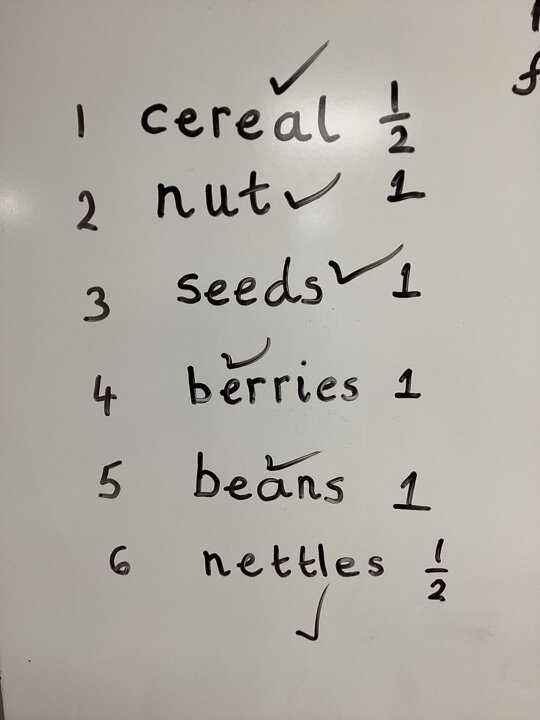 1 cereal ✓ 1/2
2 nut ✓ 1
3 seeds ✓ 1
4 berries ✓ 1
5 beans ✓ 1
6 nettles ✓ 1/2